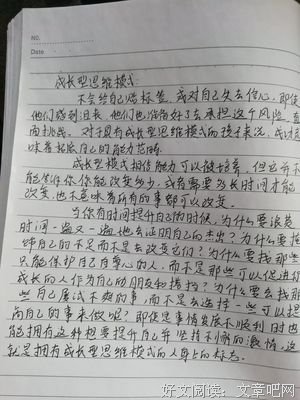 NO.
Date
成长型思维模式:
不会给自己贴标签,或对自己失去信心,即使
他们感到沮丧,他们也准备好了去承担这个风险,直
面挑战。对于拥有成长型思维模式的孩子来说,成功意
味着拓展自己的能力范畴。
成长型模式相信能力可以被培养,但它并不
能告诉你你能改变多少,或者需要多长时间才能
改变,也不意味着所有的事都可以改变。
当你有时间提升自己的时候,为什么要浪费
时间一遍又一遍地去证明自己的杰出?为什么要掩
饰自己的不足而不是去改变它们?为什么要找那些
只能保护自己自尊心的人,而不是那些可以促进你
成长的人作为自己的朋友和搭档?为什么要去找那
些自己屡试不爽的事,而不是去选择一些可以提
高自己的事来做呢?即使是事情发展不顺利时也
能拥有这种想要提升自己并坚持不懈的激情,这
就是拥有成长型思维模式的人身上的标志。
好文阅读:文章吧网